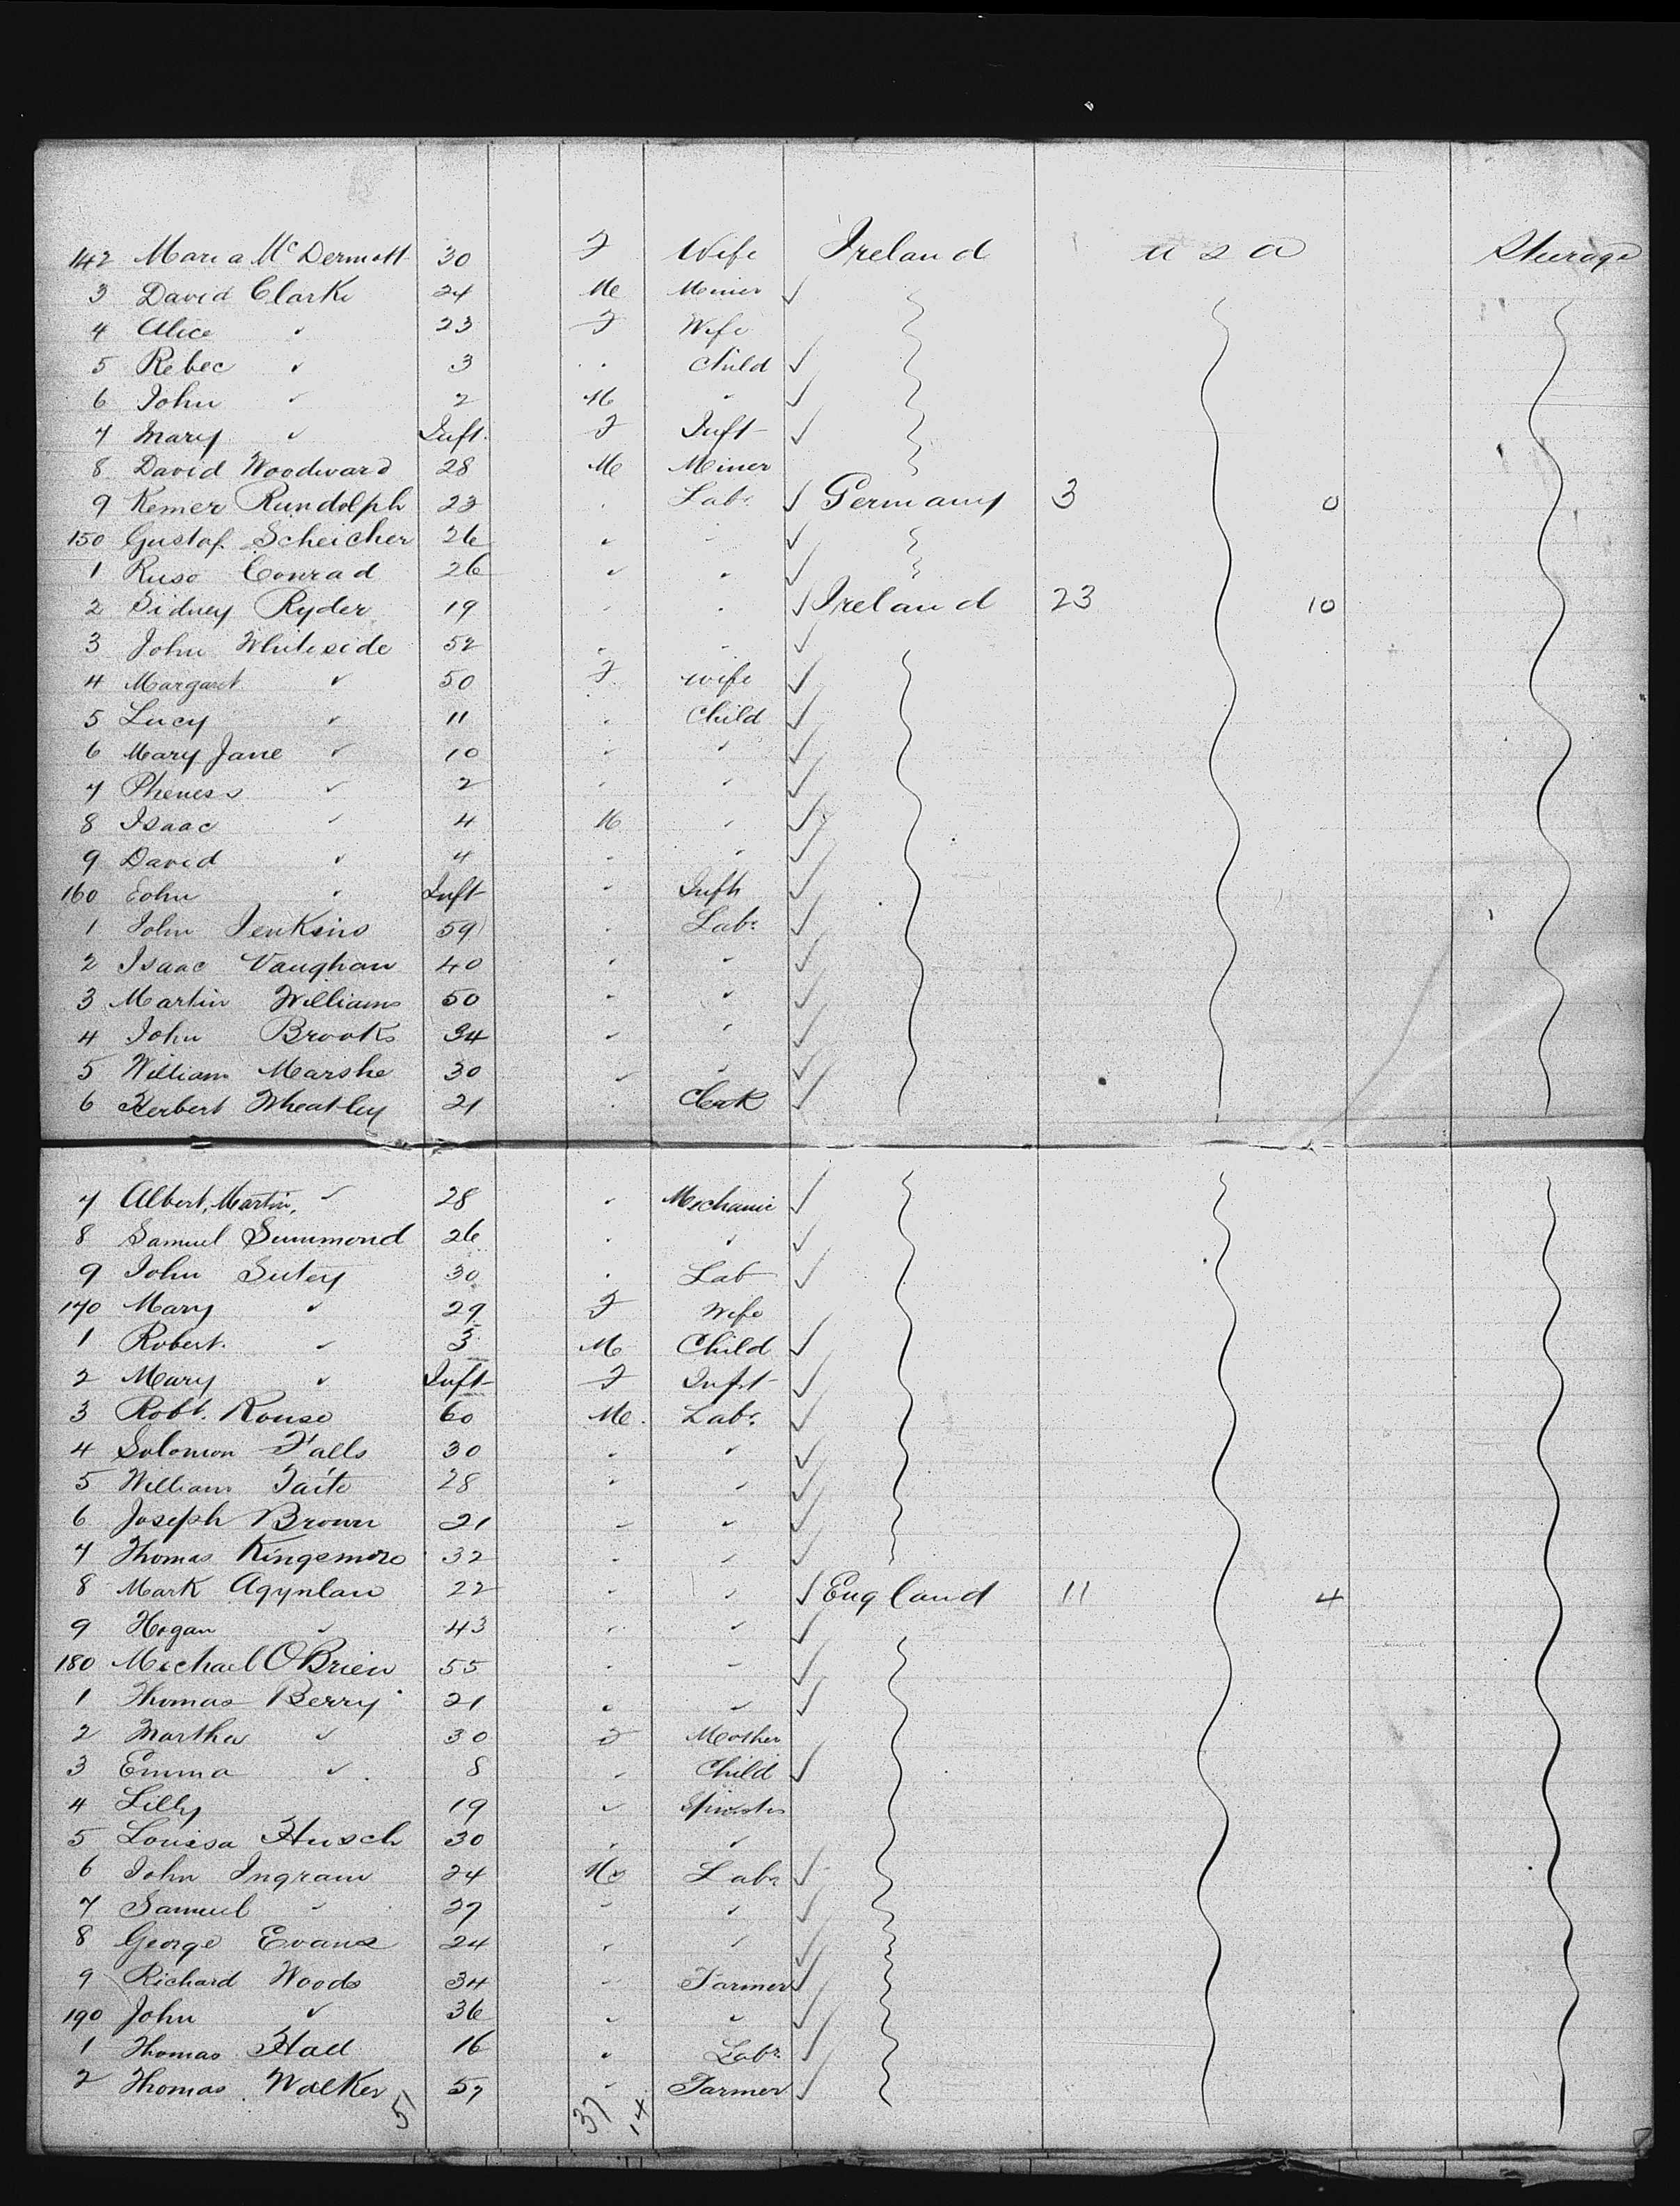 142 Maria McDermott 30 F Wife Ireland U S A Steerage
3 David Clarke 24 M Miner ✓
4 Alice " 23 F Wife
5 Rebec " 3 " Child ✓
6 John " 2 M " ✓
7 Mary " Inft. F Inft ✓
8 David Woodward 28 M Miner
9 Kemer Rundolph 23 " Labr ✓ Germany 3 0
150 Gustaf Scheicher 26 " " ✓
1 Ruso Conrad 26 " " ✓
2 Sidney Ryder 19 " " ✓ Ireland 23 10
3 John Whiteside 52 " " ✓
4 Margaret " 50 F wife ✓
5 Lucy " 11 " Child ✓
6 Mary Jane " 10 " " ✓
7 " 2 " " ✓
8 Isaac " 4 M " ✓
9 David " 4 " " ✓
160 John " Inft " Inft ✓
1 John Jenkins 59 " Labr ✓
2 Isaac Vaughan 40 " " ✓
3 Martin Williams 50 " " ✓
4 John Brooks 34 " " ✓
5 William Marshe 30 " " ✓
6 Herbert Wheatley 21 " Clerk ✓
7 Albert, Martin, " 28 " Mechanic ✓
8 Samuel Summond 26 " " ✓
9 John Sutey 30 " Lab ✓
170 Mary " 29 F Wife
1 Robert " 3 M Child ✓
2 Mary " Inft F Inft ✓
3 Robt. Rouse 60 M Labr ✓
4 Solomon Falls 30 " " ✓
5 William Taite 28 " " ✓
6 Joseph Brown 21 " " ✓
7 Thomas Kingsmore 32 " " ✓
8 Mark Aqynlan 22 " " ✓ England 11 4
9 Hogan " 43 " " ✓
180 Michael O'Brien 55 " " ✓
1 Thomas Berry 21 " " ✓
2 Martha " 30 F Mother
3 Emma " 8 " Child ✓
4 Lilly 19 " Spinster
5 Louisa Husch 30 " "
6 John Ingram 24 M Labr ✓
7 Samuel " 29 " " ✓
8 George Evans 24 " " ✓
9 Richard Woods 34 " Farmer ✓
190 John " 36 " " ✓
1 Thomas Hall 16 " Labr ✓
2 Thomas Walker 57 " Farmer ✓
51 37 14